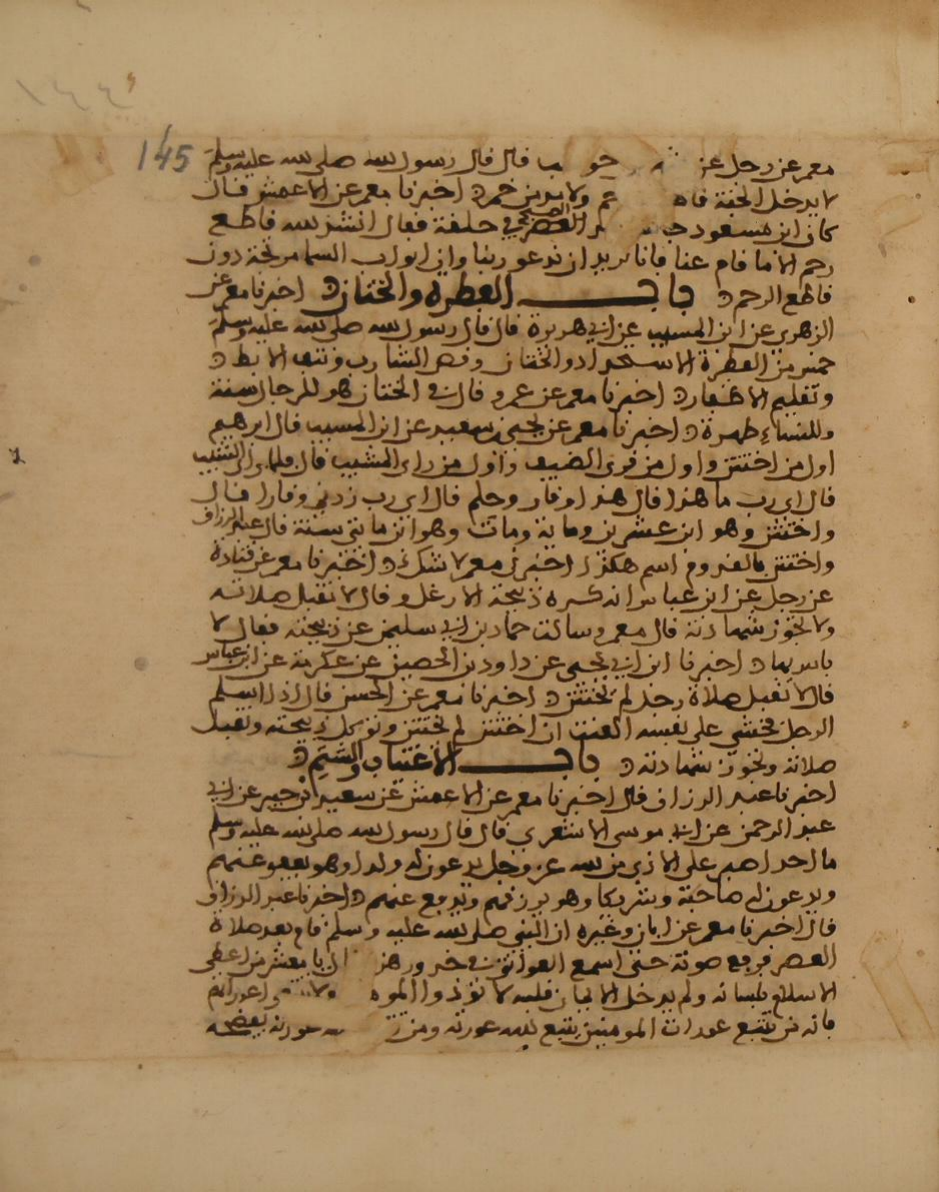 ١٤٤
145
معمر عن رجل عن حو ب قال قال رسول الله صلى الله عليه وسلم
لا يدخل الجنة قا ولا مدمن خمر اخبرنا معمر عن الاعمش قال
كان ابن مسعود العصر الصبح في حلقة فقال انشد الله قاطع
رحم الا ما قام عنا فانا نريد ان ندعو ربنا وان ابواب السما مرتجة دون
قاطع الرحم باب الفطرة والختان اخبرنا معمر عن
الزهري عن ابن المسيب عن ابي هريرة قال قال رسول الله صلى الله عليه وسلم
خمس من الفطرة الاستحداد والختان وقص الشارب ونتف الابط
وتقليم الاظفار اخبرنا معمر عن عمرو قال في الختان هو للرجال سنة
وللنساء طهرة اخبرنا معمر عن يحيى بن سعيد عن ابن المسيب قال ابرهيم
اول من اختتن واول من قرى الضيف واول من راى الشيب قال فلما راى الشيب
قال اي رب ما هذا قال هذا وقار وحلم قال اي رب زدني وقارا قال
واختتن وهو ابن عشرين وماية ومات وهو ابن مايتي سنة قال عبد الرزاق
واختتن بالقدوم اسم هكذا اخبرني معمر لا شك اخبرنا معمر عن قتادة
عن رجل عن ابن عباس انه كره ذبيحة الارغل وقال لا تقبل صلاته
ولا تجوز شهادته قال معمر وسالت حماد بن ابي سليمن عن ذبيحته فقال لا
باس بها اخبرنا ابن ابي يحيى عن داود بن الحصين عن عكرمة عن ابن عباس
قال لا تقبل صلاة رجل لم يختتن اخبرنا معمر عن الحسن قال اذا اسلم
الرجل فخشي على نفسه العنت ان اختتن لم يختتن وتوكل ذبيحته وتقبل
صلاته وتجوز شهادته باب الاغتياب والشتم
اخبرنا عبد الرزاق قال اخبرنا معمر عن الاعمش عن سعيد بن جبير عن ابي
عبد الرحمن عن ابي موسى الاشعري قال قال رسول الله صلى الله عليه وسلم
ما احد اصبر على الاذى من الله عز وجل يدعون له ولدا وهو يعفو عنهم
ويدعون له صاحبة وشريكا وهو يرزقهم ويدفع عنهم اخبرنا عبد الرزاق
قال اخبرنا معمر عن ابان وغيره ان النبي صلى الله عليه وسلم قام بعد صلاة
العصر فرفع صوته حتى اسمع العواتق في خدورهن ال يا معشر من اعطى
الاسلام بلسانه ولم يدخل الايمان قلبه لا توذوا المومـ ولا عوراتهم
فانه من يتبع عورات المومنين يتبع الله عورته ومن الله عورته يفضحه